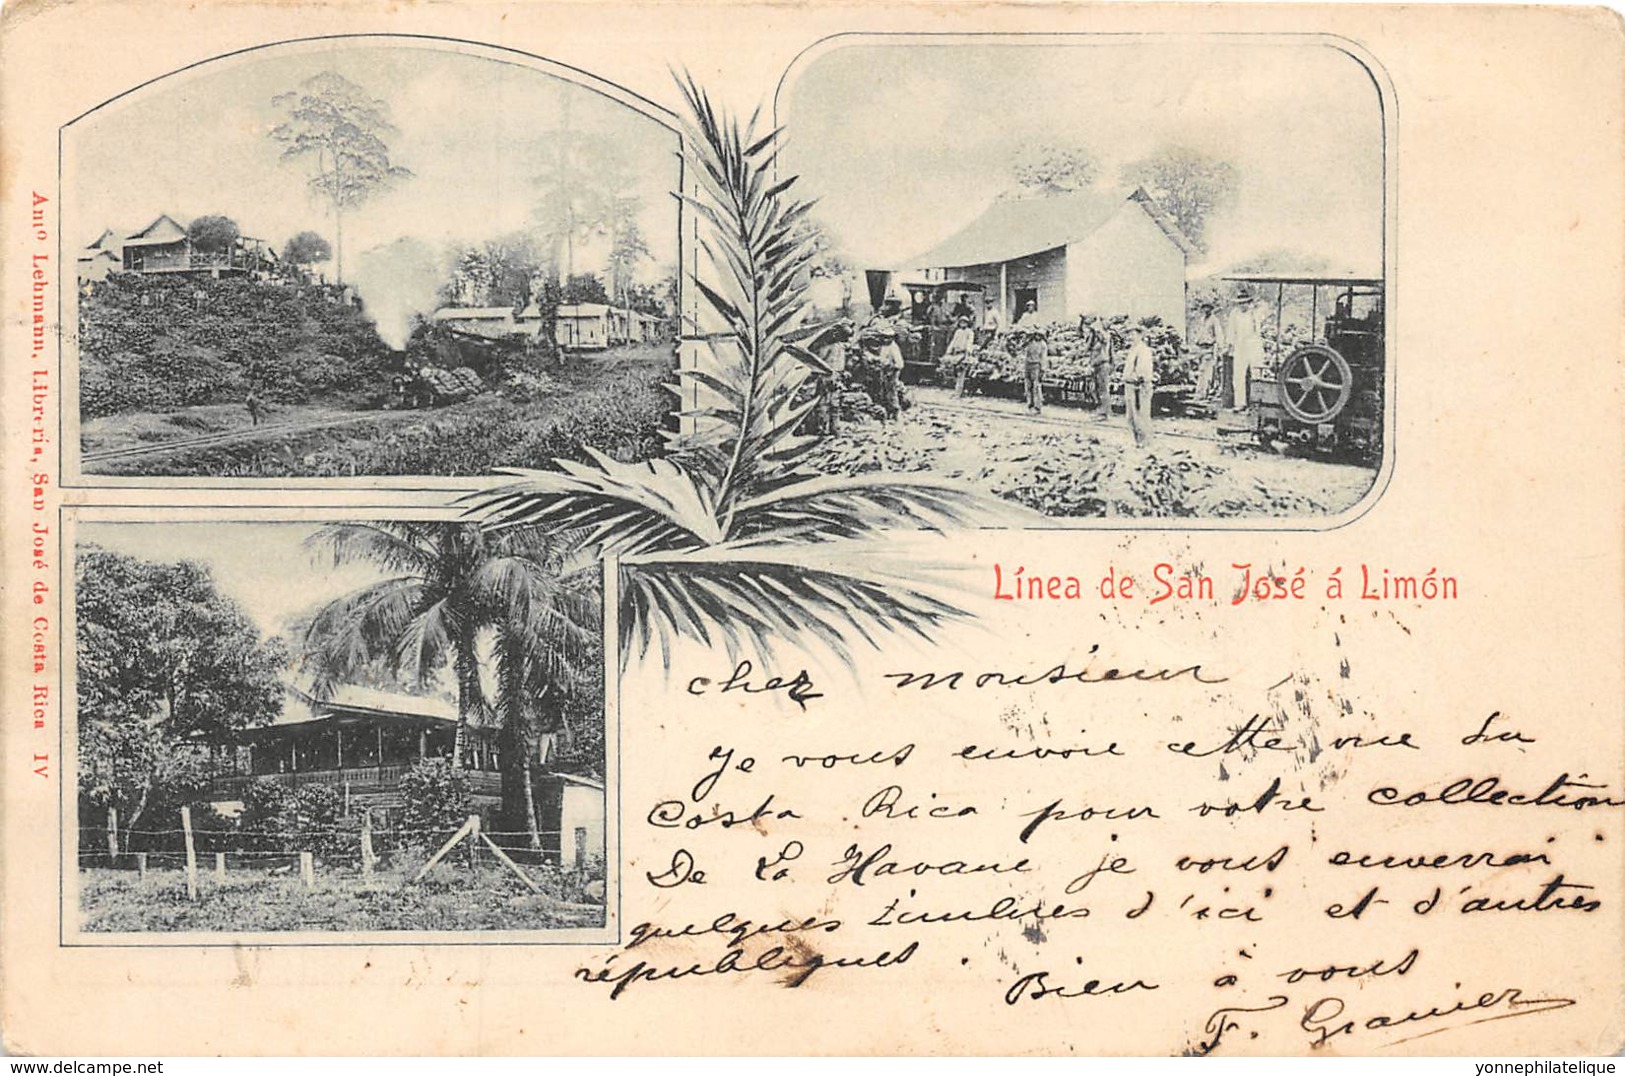 Antº Lehmann, Libreria, San José de Costa Rica IV
Línea de San José á Limón
cher monsieur
Je vous envoie cette vue du
Costa Rica pour votre collection
De La Havane je vous enverrai
quelques timbres d'ici et d'autres
républiques.
Bien à vous
F. Granier
yonnephilatelique